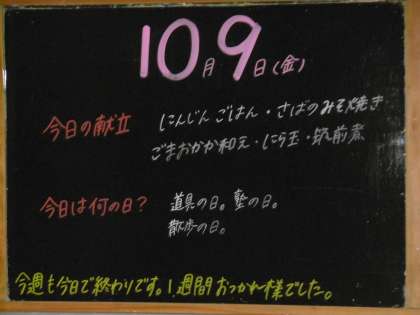 10月9日(金)
今日の献立 にんじんごはん・さばのみそ焼き
ごまおかか和え・にら玉・筑前煮
今日は何の日? 道具の日。塾の日。
散歩の日。
今週も今日で終わりです。1週間おつかれ様でした。